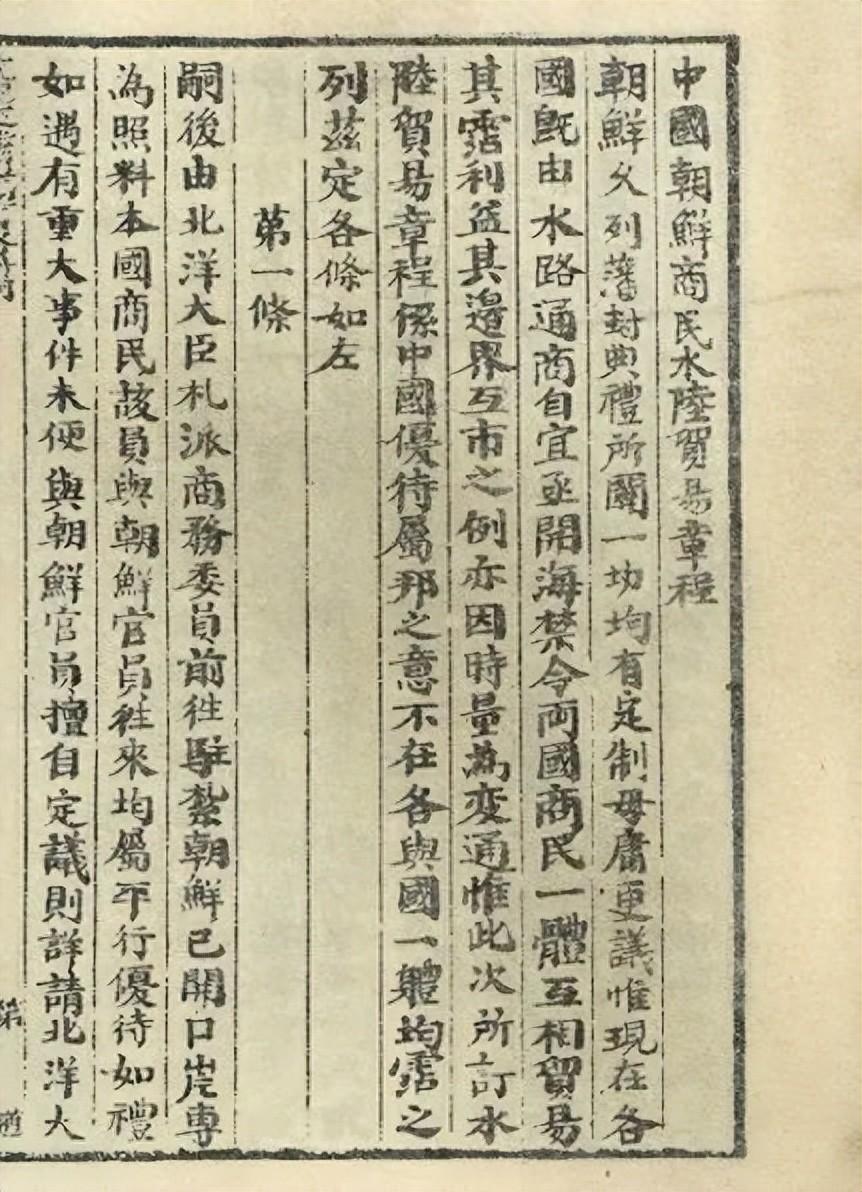 中國朝鮮商民水陸貿易章程
朝鮮久列藩封典禮所關一切均有定制毋庸更議惟現在各
國既由水路通商自宜亟開海禁令兩國商民一體互相貿易
其霑利益其邊界互市之例亦因時量為變通惟此次所訂水
陸貿易章程係中國優待屬邦之意不在各與國一體均霑之
列茲定各條如左
第一條
嗣後由北洋大臣札派商務委員前往駐紮朝鮮已開口岸專
為照料本國商民該員與朝鮮官員往來均屬平行優待如禮
如遇有重大事件未便與朝鮮官員擅自定議則詳請北洋大